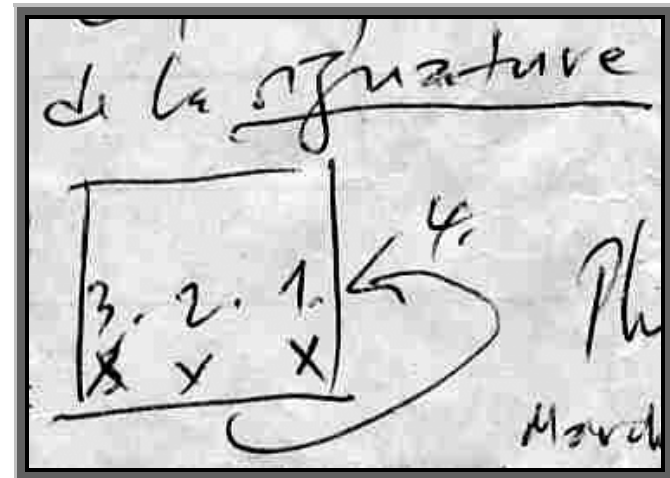 de la signature
4.
3. 2. 1.
x y x
Ph
March